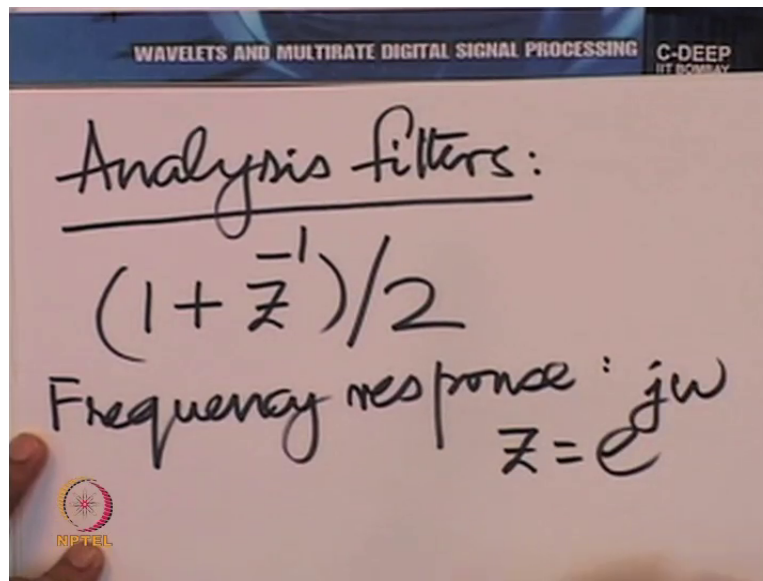 WAVELETS AND MULTIRATE DIGITAL SIGNAL PROCESSING
C-DEEP
IIT BOMBAY
Analysis filters:
(1 + z⁻¹)/2
Frequency response:
z = e^{jω}
NPTEL